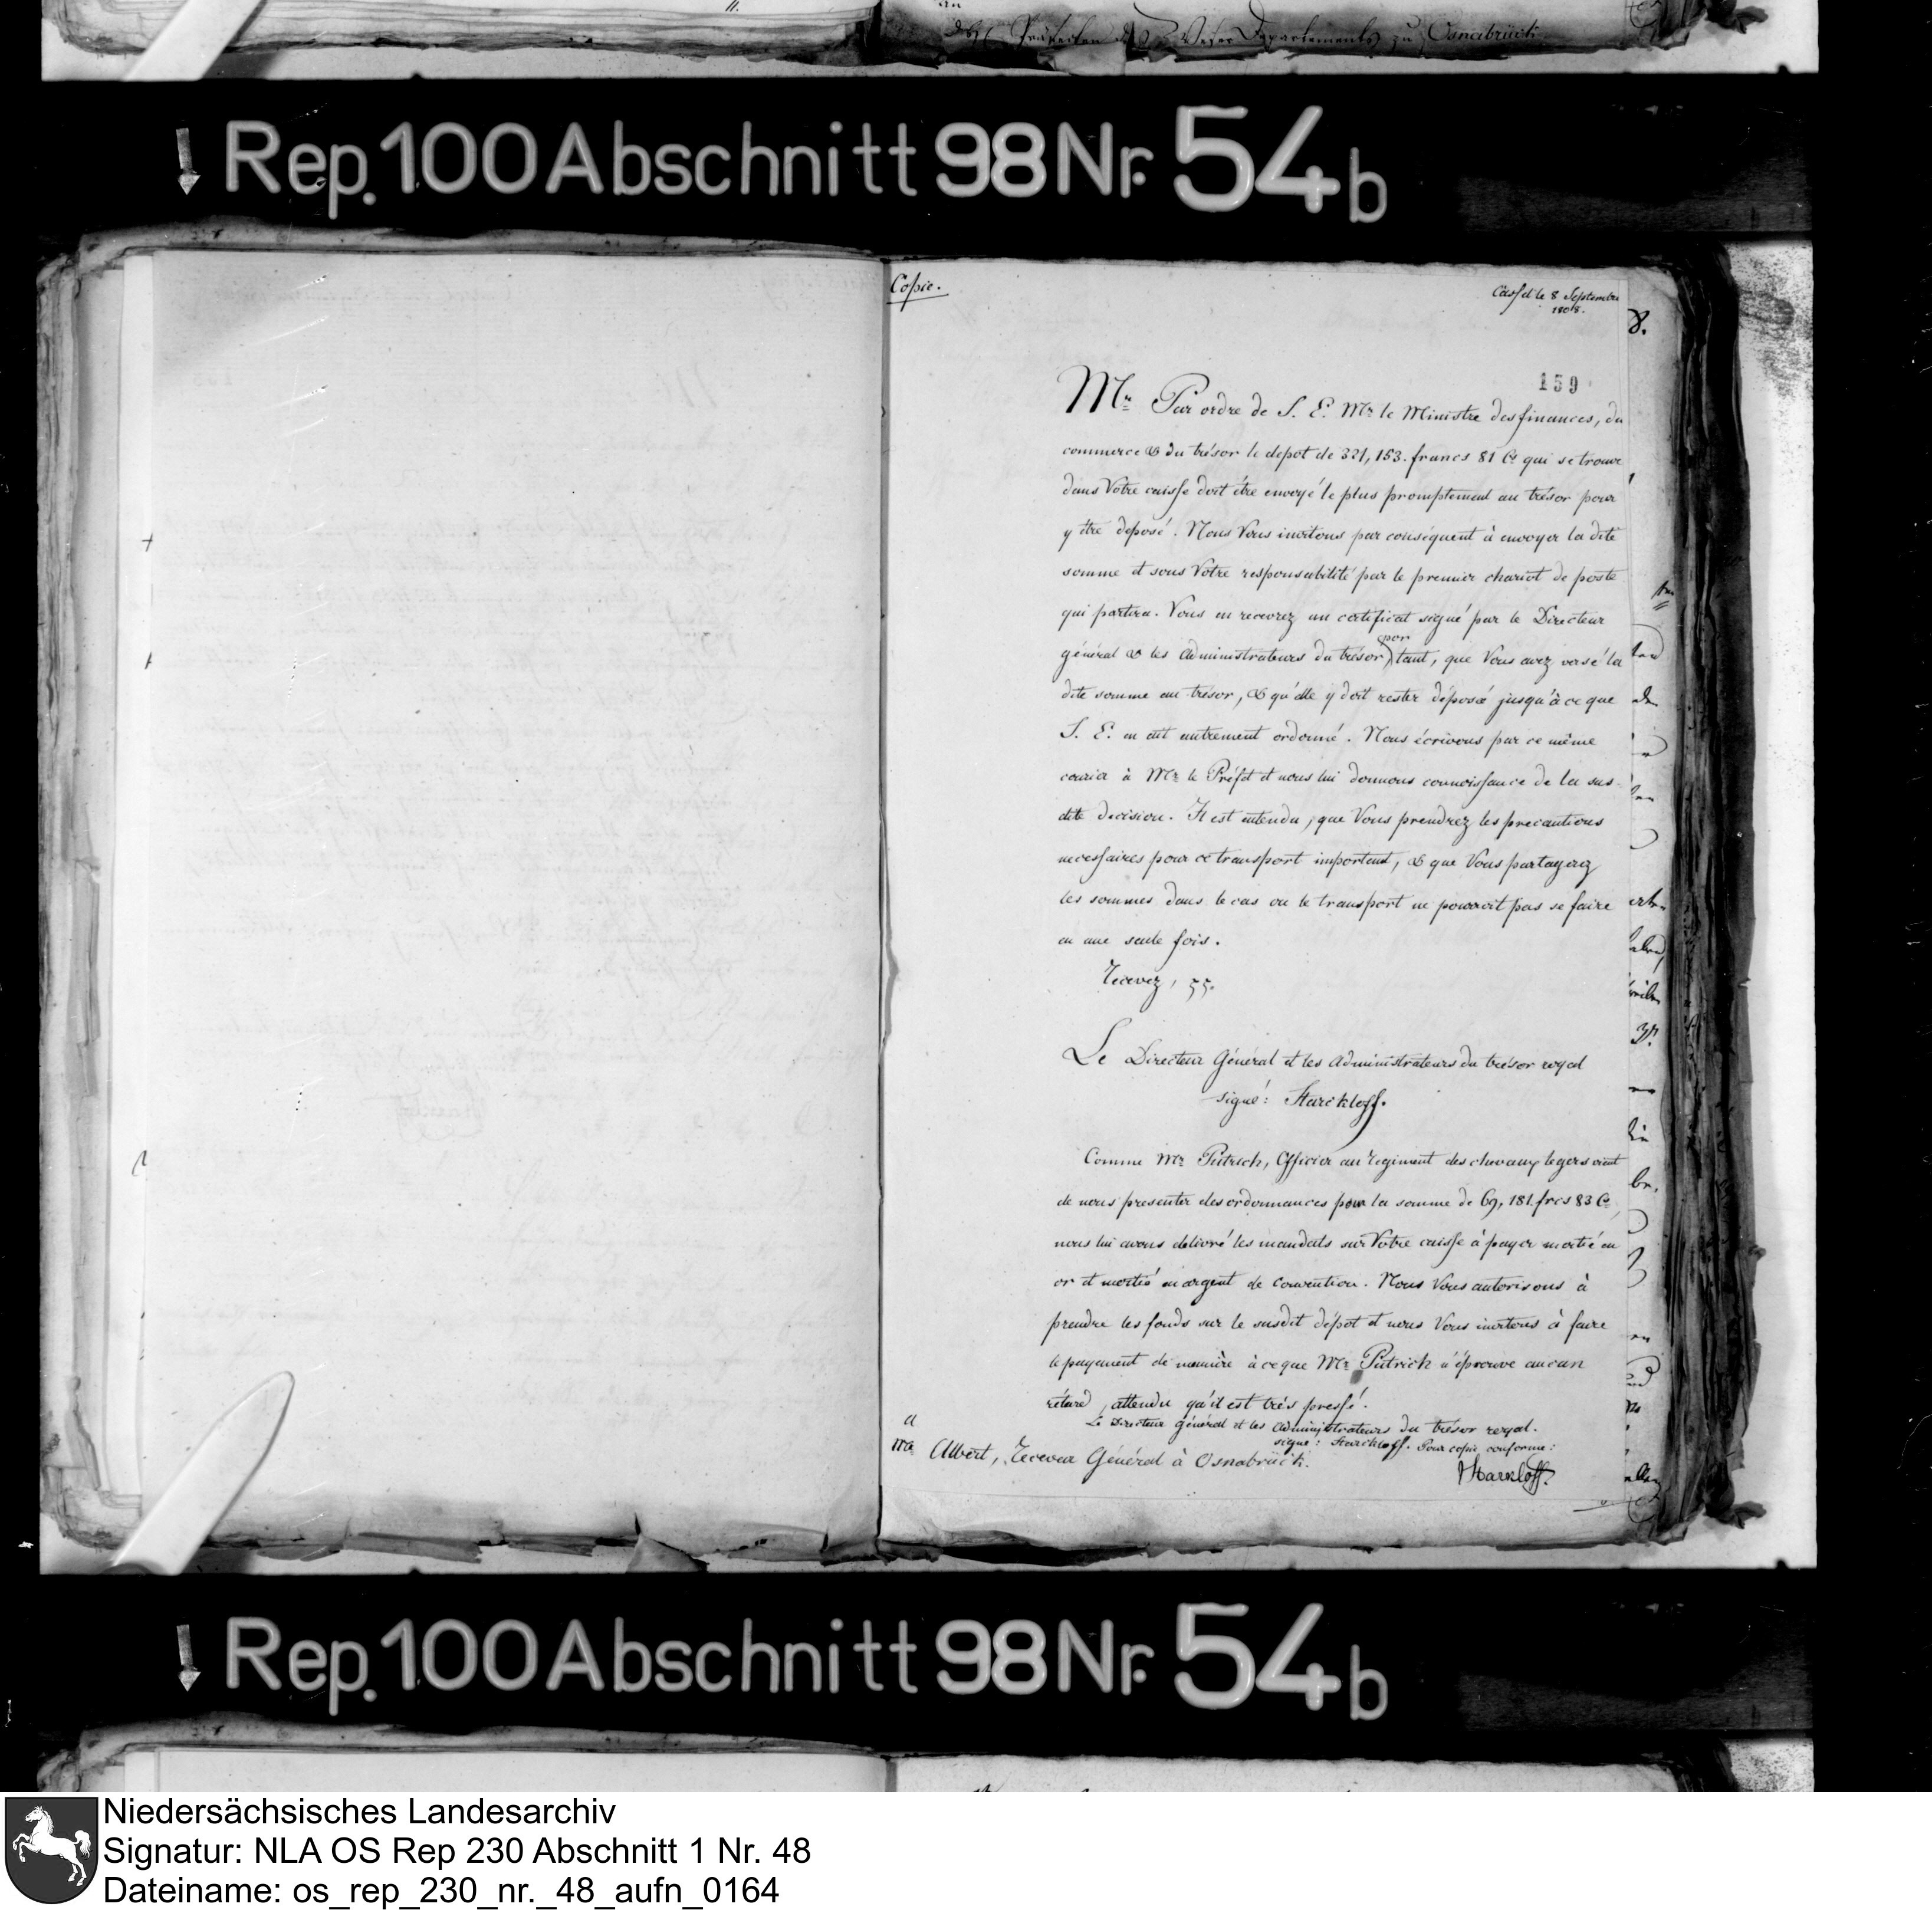 des Präfecten des Weser Departements zu Osnabrück
Rep. 100 Abschnitt 98 Nr. 54b
Copie.
Cassel le 8 Septembre
1808.
8.
159
Mr. Par ordre de S. E. Mr. le Ministre des finances, du
commerce & du trésor le depot de 321,153. francs 81 Cs qui se trouve
dans Votre caisse doit être envoyé le plus promptement au trésor pour
y être deposé. Nous Vous invitons par conséquent à envoyer la dite
somme et sous Votre responsabilité par le premier chariot de poste
qui partira. Vous en recevrez un certificat signé par le Directeur
général & les Administrateurs du trésor portant, que Vous avez versé la
dite somme au trésor, & qu'elle y doit rester déposée jusqu'à ce que
S. E. en ait autrement ordonné. Nous écrivons par ce même
courier à Mr. le Préfet et nous lui donnons connoissance de la sus-
dite decision. Il est entendu, que Vous prendrez les precautions
necessaires pour ce transport important, & que Vous partagerez
les sommes dans le cas ou le transport ne pourroit pas se faire
en une seule fois.
Recevez,
Le Directeur Général et les Administrateurs du trésor royal
signé: Starckloff.
Comme Mr. Putrich, Officier au regiment des chevaux legers vient
de nous presenter des ordonnances pour la somme de 69,181. frcs 83 Cs
nous lui avons delivré les mandats sur Votre caisse à payer moitié en
or et moitié en argent de Convention. Nous Vous autorisons à
prendre les fonds sur le susdit dépot et nous Vous invitons à faire
le payement de manière à ce que Mr. Putrich n'éprouve aucun
rétard, attendu qu'il est très pressé.
Le Directeur général et les Administrateurs du trésor royal.
signé: Starckloff. Pour copie conforme:
a
Mr. Albert, Receveur Général à Osnabrück.
Starkloff.
Rep. 100 Abschnitt 98 Nr. 54b
Niedersächsisches Landesarchiv
Signatur: NLA OS Rep 230 Abschnitt 1 Nr. 48
Dateiname: os_rep_230_nr._48_aufn_0164